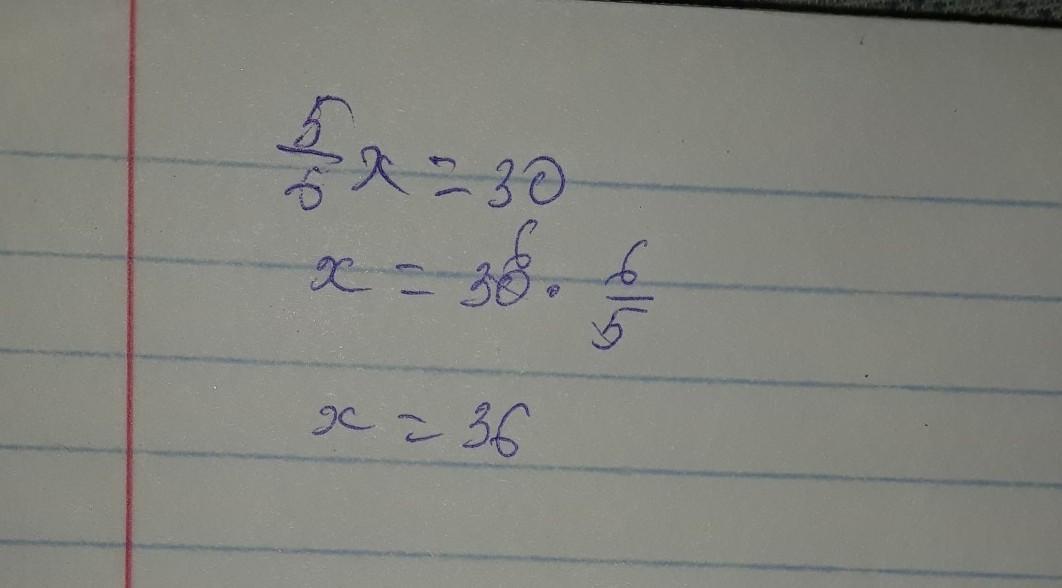 5/6 x = 30
x = 30 6 · 6/5
x = 36